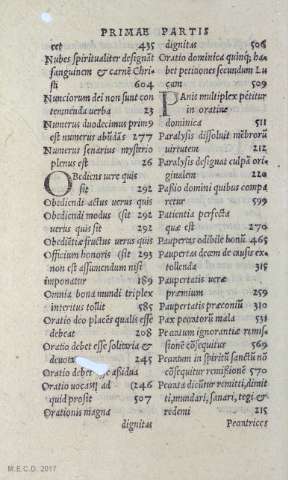 PRIMAE PARTIS
cet 435
Nubes spiritualiter designãt
sanguinem & carnẽ Chri-
sti 604
Nunciorum dei non sunt con
temnenda uerba 23
Numerus duodecimus prim9
est numerus abũdãs 277
Numerus senarius mysterio
plenus est 26
OBediens uere quis
sit 292
Obediendi actus uerus quis
Obediendi modus (sit 292
uerus quis sit 292
Obediẽtiæ fructus uerus quis
Officium honoris (sit 293
non est assumendum nisi
imponatur 189
Omnia bona mundi triplex
interitus tollit 585
Oratio deo placẽs qualis esse
debeat 208
Oratio debet esse solitaria &
deuota 245
Oratio debet esse assidua
Oratio uocalis ad (246
quid prosit 507
Orationis magna
dignitas
dignitas 506
Oratio dominica quinq; ha-
bet petitiones secundum Lu
cam 509
PAnis multiplex petitur
in oratiõe
dominica 511
Paralysis dissoluit mẽbrorũ
uirtutem 212
Paralysis designat culpã ori-
ginalem 220
Passio domini quibus compa
retur 599
Patientia perfecta
quæ est 270
Paupertas odibile bonũ 465
Paupertas quam de causis ex-
tollenda 315
Paupertatis ueræ
præmium 259
Paupertatis præconiũ 310
Pax peccatorũ mala 531
Peccatum ignorantiæ remis-
sionẽ cõsequitur 569
Peccatum in spiritũ sanctũ nõ
cõsequitur remissionẽ 570
Peccata dicũtur remitti, dimit
ti, mundari, sanari, tegi &
redemi 215
Peccatrices
M.E.C.D. 2017